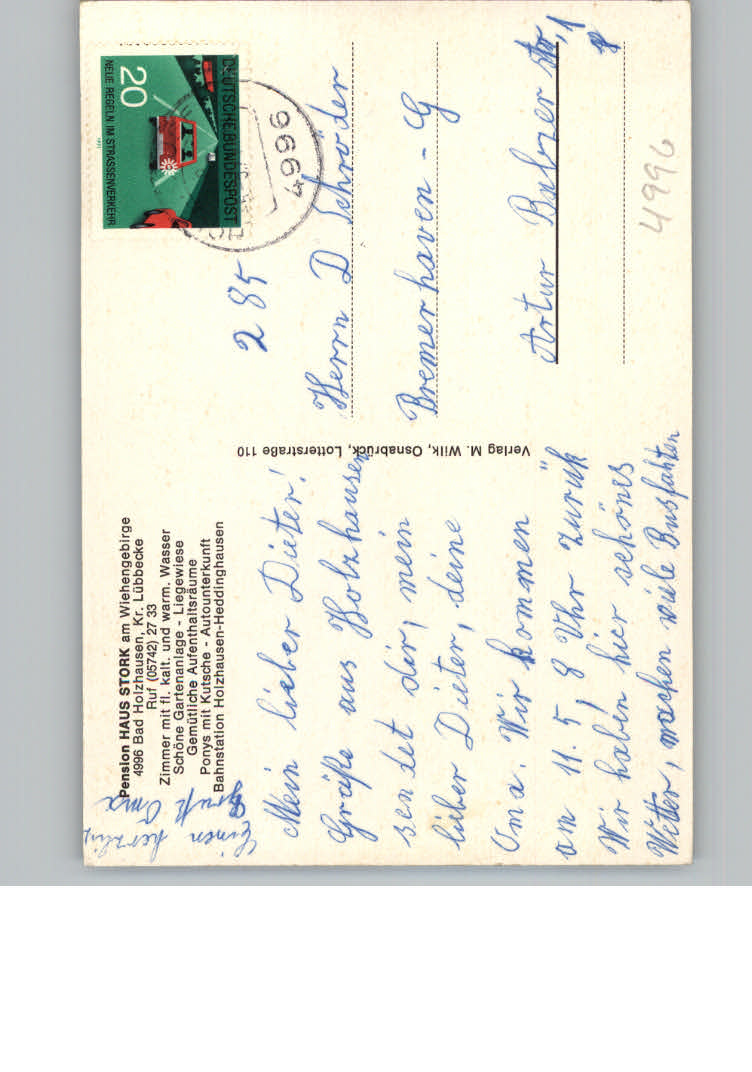 Pension HAUS STORK am Wiehengebirge
4996 Bad Holzhausen, Kr. Lübbecke
Ruf (05742) 27 33
Zimmer mit fl. kalt. und warm. Wasser
Schöne Gartenanlage - Liegewiese
Gemütliche Aufenthaltsräume
Ponys mit Kutsche - Autounterkunft
Bahnstation Holzhausen-Heddinghausen
Mein lieber Dieter!
Grüße aus Holzhausen
sendet dir, mein
lieber Dieter, deine
Oma. Wir kommen
am 11.5 8 Uhr zurük
Wir haben hier schönes
Wetter, machen viele Busfahten
Einen herzlig
Gruß Oma
Verlag M. Wilk, Osnabrück, Lotterstraße 110
DEUTSCHE BUNDESPOST
20
NEUE REGELN IM STRASSENVERKEHR
1971
4996
285
Herrn D Schröder
Bremerhaven - G
Artur Balzer Str, 18
4996